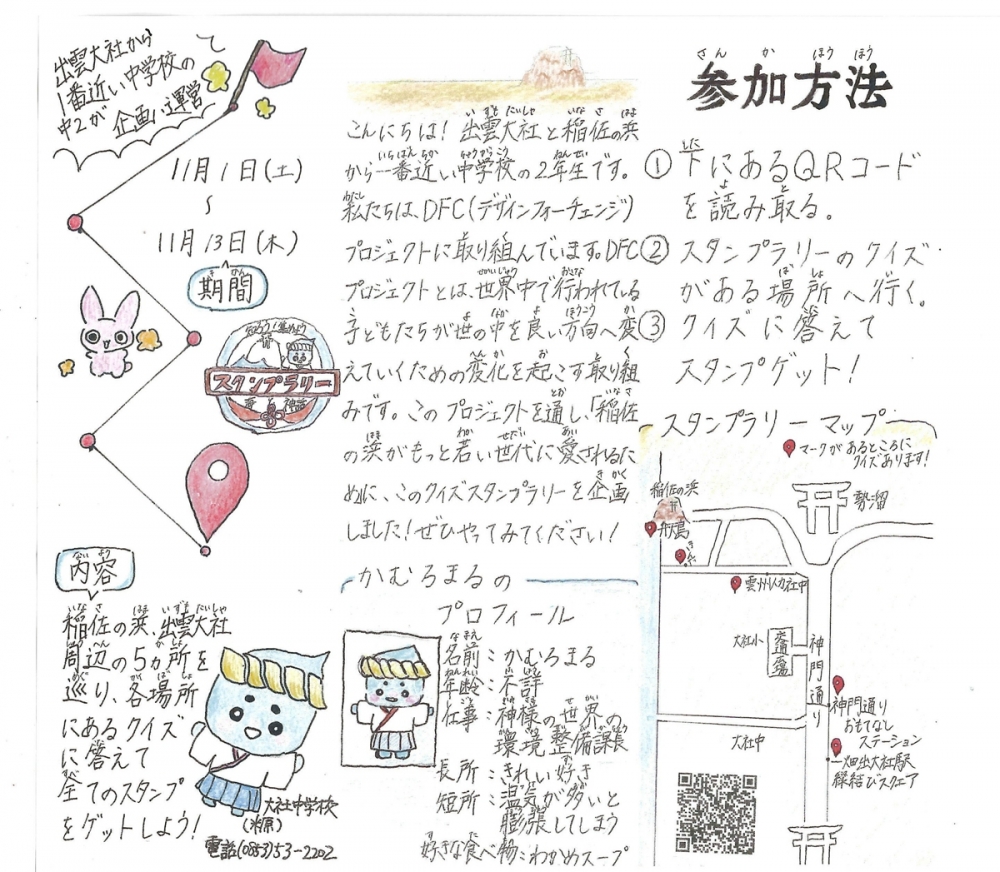 出雲大社から
1番近い中学校の
中2が企画、運営
11月1日(土)
〜
11月13日(木)
期間
スタンプラリー
内容
稲佐の浜、出雲大社
周辺の5か所を
巡り、各場所
にあるクイズ
に答えて
全てのスタンプ
をゲットしよう!
大社中学校
電話(0853)53-2202
こんにちは!出雲大社と稲佐の浜
から一番近い中学校の2年生です。
私たちは、DFC(デザインフォーチェンジ)
プロジェクトに取り組んでいます。DFC
プロジェクトとは、世界中で行われている
子どもたちが世の中を良い方向へ変
えていくための変化を起こす取り組
みです。このプロジェクトを通し、「稲佐
の浜がもっと若い世代に愛されるた
めに、このクイズスタンプラリーを企画
しました!ぜひやってみてください!
かむろまるの
プロフィール
名前:かむろまる
年齢:不詳
仕事:神様の世界の
環境整備課長
長所:きれい好き
短所:湿気が多いと
膨張してしまう
好きな食べ物:わかめスープ
参加方法
① 下にあるQRコード
を読み取る。
② スタンプラリーのクイズ
がある場所へ行く。
③ クイズに答えて
スタンプゲット!
スタンプラリーマップ
マークがあるところに
クイズあります!
稲佐の浜
弁天島
勢溜
雲州人力社中
大社小
神門通り
神門通り
おもてなし
ステーション
大社中
一畑出雲大社駅
縁結びスクエア